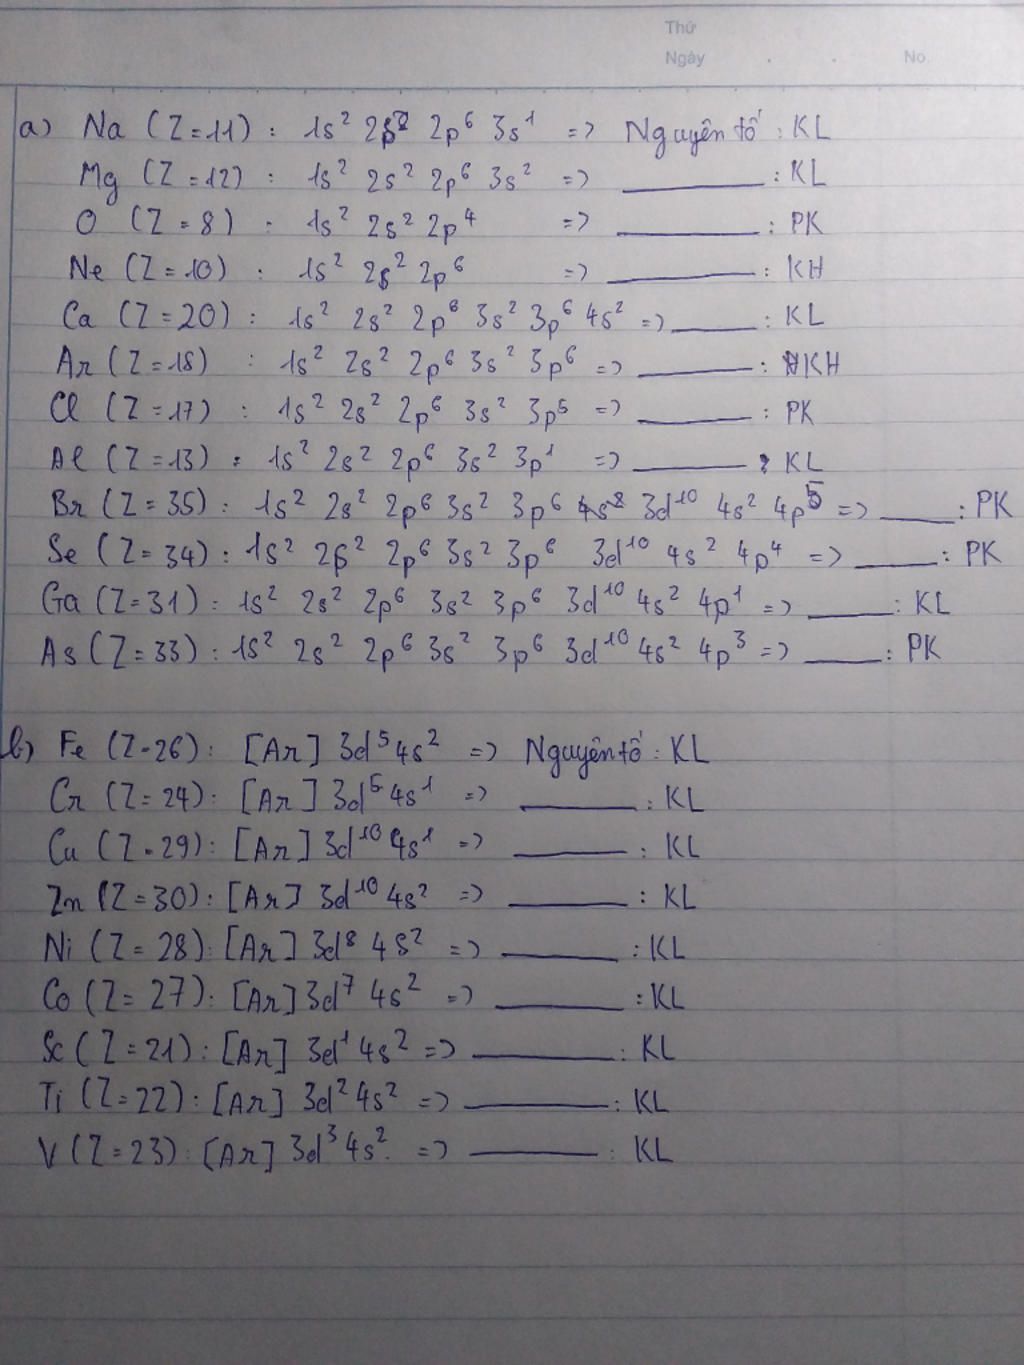 Thứ
Ngày . . No.
a) Na (Z=11) : 1s² 2s² 2p⁶ 3s¹ => Nguyên tố : KL
Mg (Z=12) : 1s² 2s² 2p⁶ 3s² => ______ : KL
O (Z=8) : 1s² 2s² 2p⁴ => ______ : PK
Ne (Z=10) : 1s² 2s² 2p⁶ => ______ : KH
Ca (Z=20) : 1s² 2s² 2p⁶ 3s² 3p⁶ 4s² => ______ : KL
Ar (Z=18) : 1s² 2s² 2p⁶ 3s² 3p⁶ => ______ : KH
Cl (Z=17) : 1s² 2s² 2p⁶ 3s² 3p⁵ => ______ : PK
Al (Z=13) : 1s² 2s² 2p⁶ 3s² 3p¹ => ______ : KL
Br (Z=35) : 1s² 2s² 2p⁶ 3s² 3p⁶ 3d¹⁰ 4s² 4p⁵ => ______ : PK
Se (Z=34) : 1s² 2s² 2p⁶ 3s² 3p⁶ 3d¹⁰ 4s² 4p⁴ => ______ : PK
Ga (Z=31) : 1s² 2s² 2p⁶ 3s² 3p⁶ 3d¹⁰ 4s² 4p¹ => ______ : KL
As (Z=33) : 1s² 2s² 2p⁶ 3s² 3p⁶ 3d¹⁰ 4s² 4p³ => ______ : PK
b) Fe (Z=26) : [Ar] 3d⁵ 4s² => Nguyên tố : KL
Cr (Z=24) : [Ar] 3d⁵ 4s¹ => ______ : KL
Cu (Z=29) : [Ar] 3d¹⁰ 4s¹ => ______ : KL
Zn (Z=30) : [Ar] 3d¹⁰ 4s² => ______ : KL
Ni (Z=28) : [Ar] 3d⁸ 4s² => ______ : KL
Co (Z=27) : [Ar] 3d⁷ 4s² => ______ : KL
Sc (Z=21) : [Ar] 3d¹ 4s² => ______ : KL
Ti (Z=22) : [Ar] 3d² 4s² => ______ : KL
V (Z=23) : [Ar] 3d³ 4s². => ______ : KL